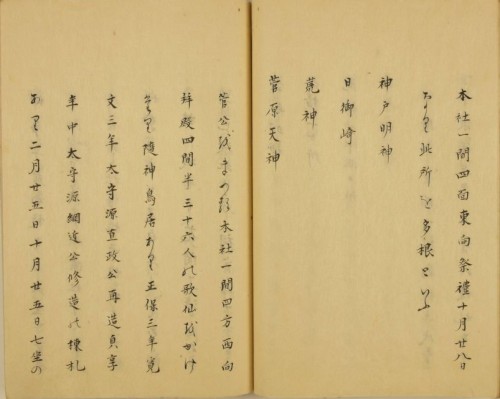 本社一間四面東向祭禮十月廿八日
あり此所を多根といふ
神戸明神
日御崎
荒神
菅原天神
菅公をまつる本社一間四方西向
拜殿四間半三十六人の歌仙をかけ
あり随神鳥居あり正保三年寛
文三年太守源直政公再造貞享
年中太守源綱近公修造の棟札
あり二月廿五日十月廿五日七坐の